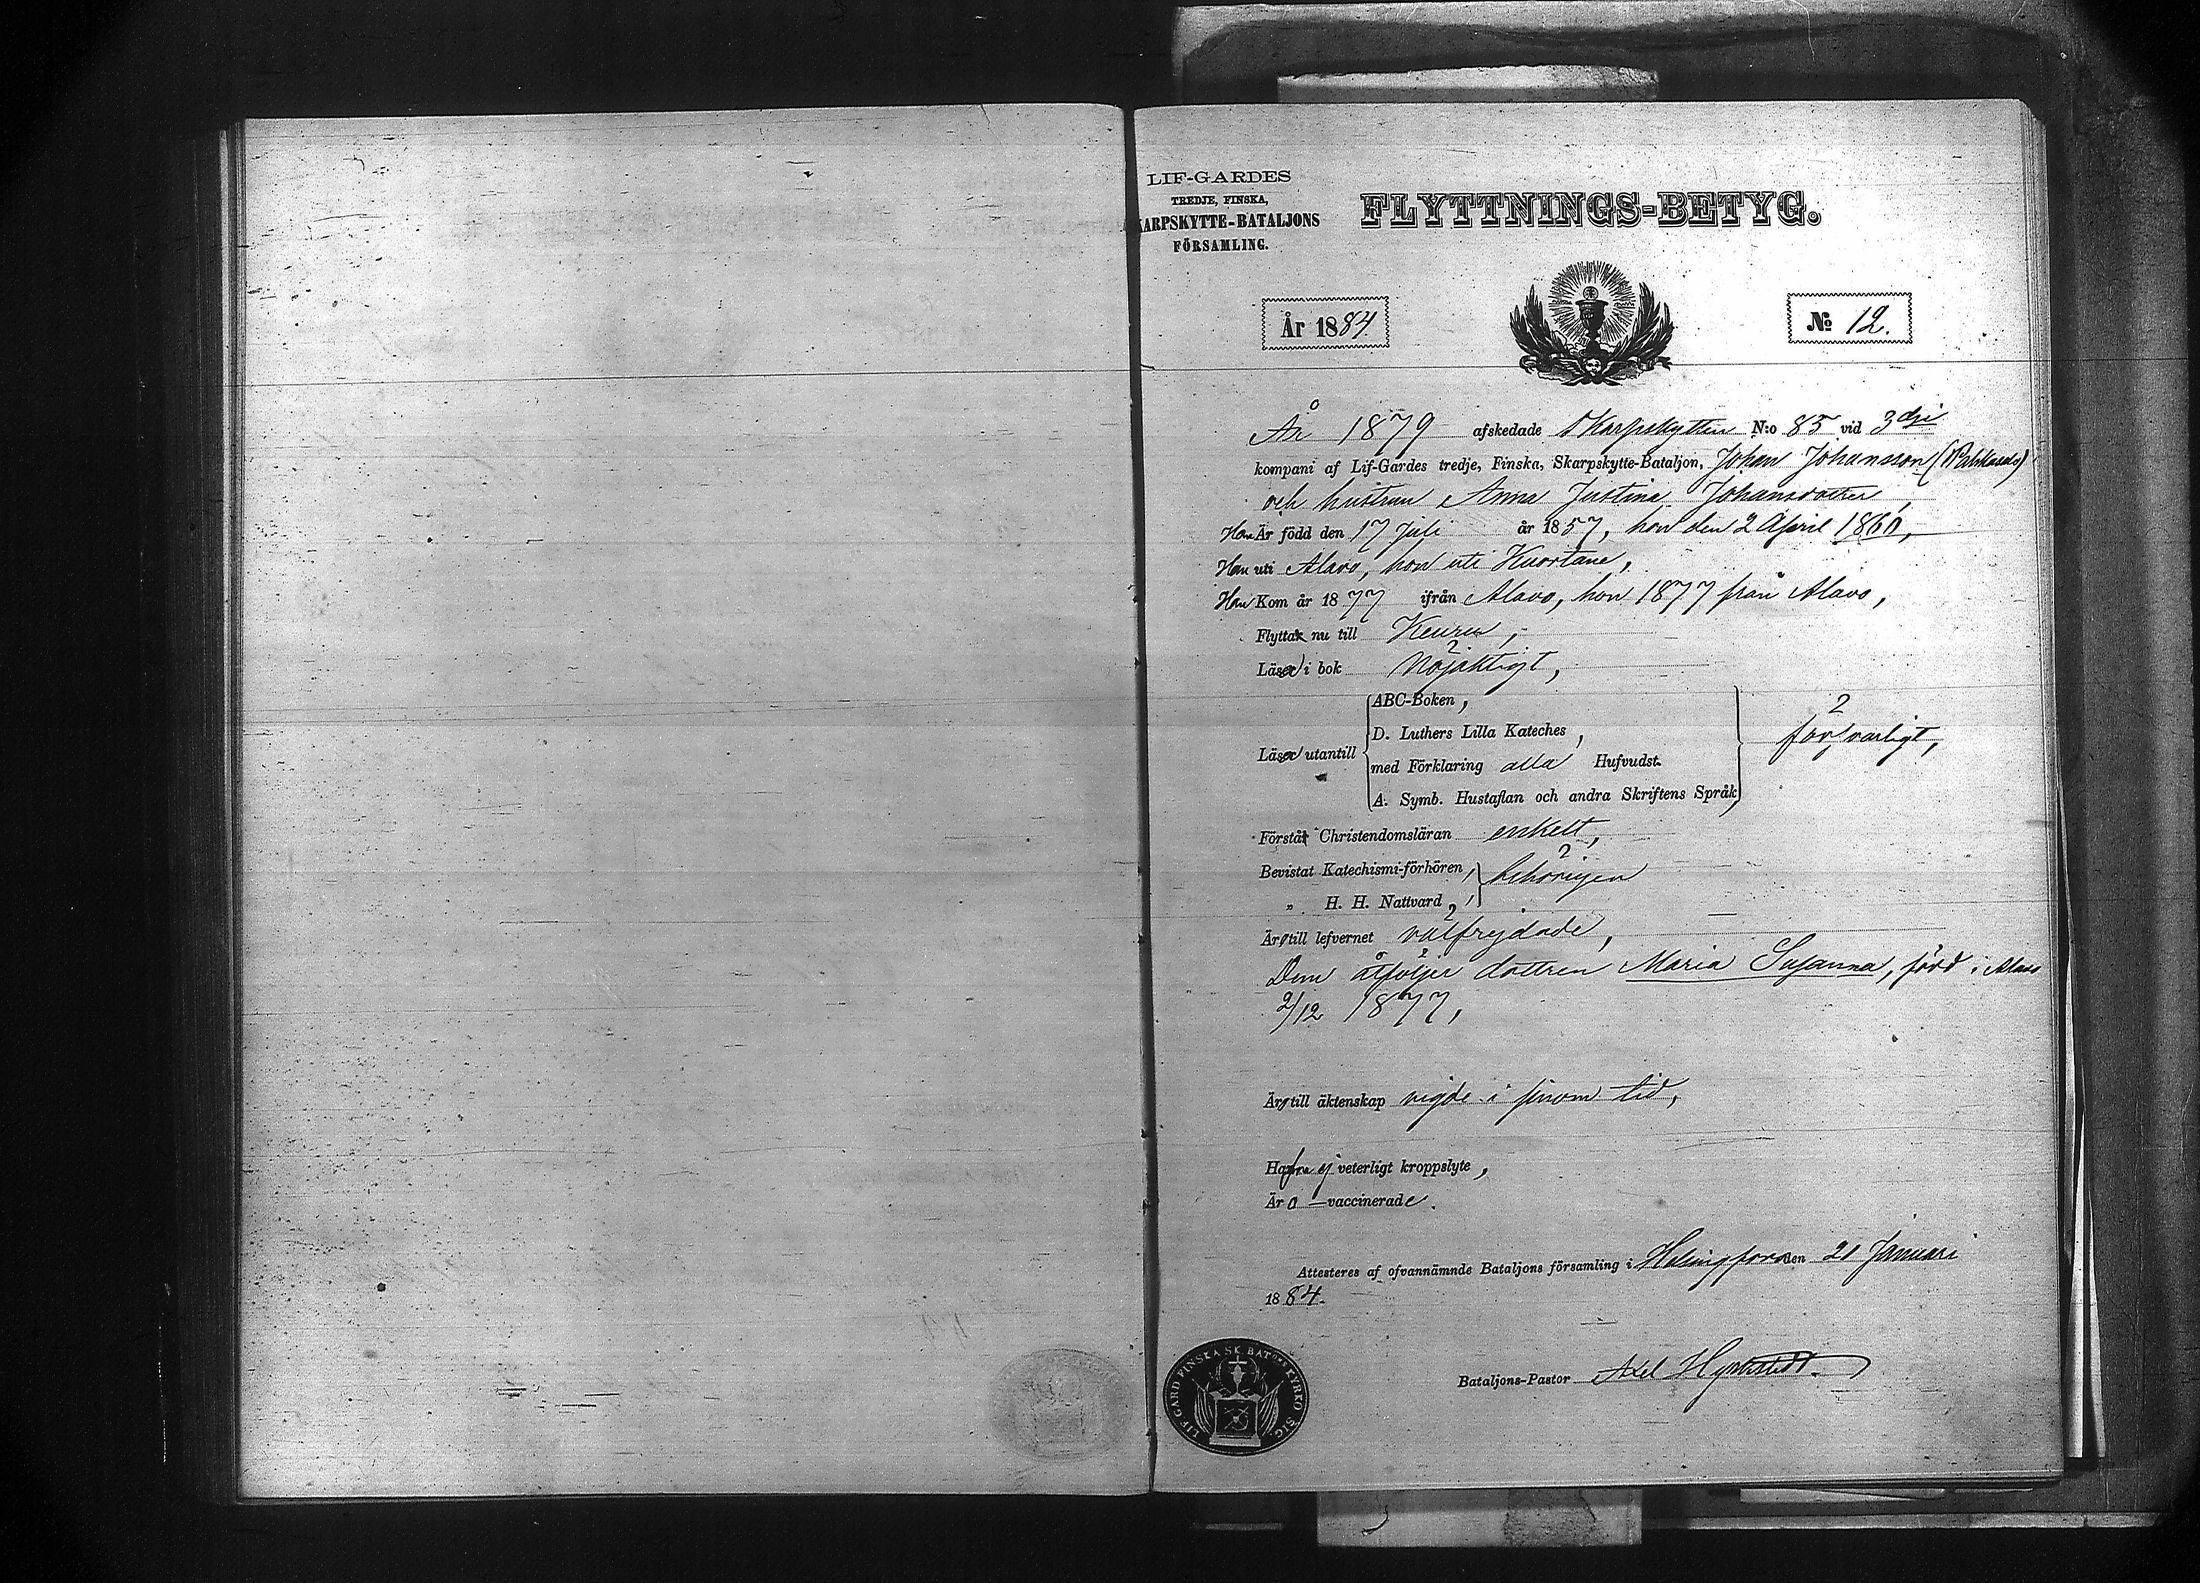 LIF-GARDES
TREDJE, FINSKA,
KARPSKYTTE-BATALJONS
FÖRSAMLING.
FLYTTNINGS-BETYG.
År 1884
No 12.
År 1879 afskedade Skarpskytten N:o 85 vid 3dje
kompani af Lif-Gardes tredje, Finska, Skarpskytte-Bataljon, Johan Johansson
och hustrun Anna Justina Johansdotter,
Han Är född den 17 Juli år 1857, hon den 2 April 1860,
Han uti Alavo, hon uti Kuortane,
Han Kom år 1877 ifrån Alavo, hon 1877 från Alavo,
Flytta nu till Keuru,
Läsa i bok nöjaktigt,
Läsa utantill
ABC-Boken,
D. Luthers Lilla Kateches,
med Förklaring alla Hufvudst.
A. Symb. Hustaflan och andra Skriftens Språk,
försvarligt,
Förstå Christendomsläran enkelt,
Bevistat Katechismi-förhören,
" H. H. Nattvard,
behörigen
Äro till lefvernet välfrejdade,
Dem åtföljer dottren Maria Susanna, född i Alavo
2/12 1877,
Äro till äktenskap vigde i sinom tid,
Hafva ej veterligt kroppslyte,
Äro vaccinerade.
Attesteres af ofvannämnde Bataljons församling i Helsingfors den 21 Januari
1884.
Bataljons-Pastor Axel
LIF GARD FINSKA SK. BATONS KYRKO SIG.